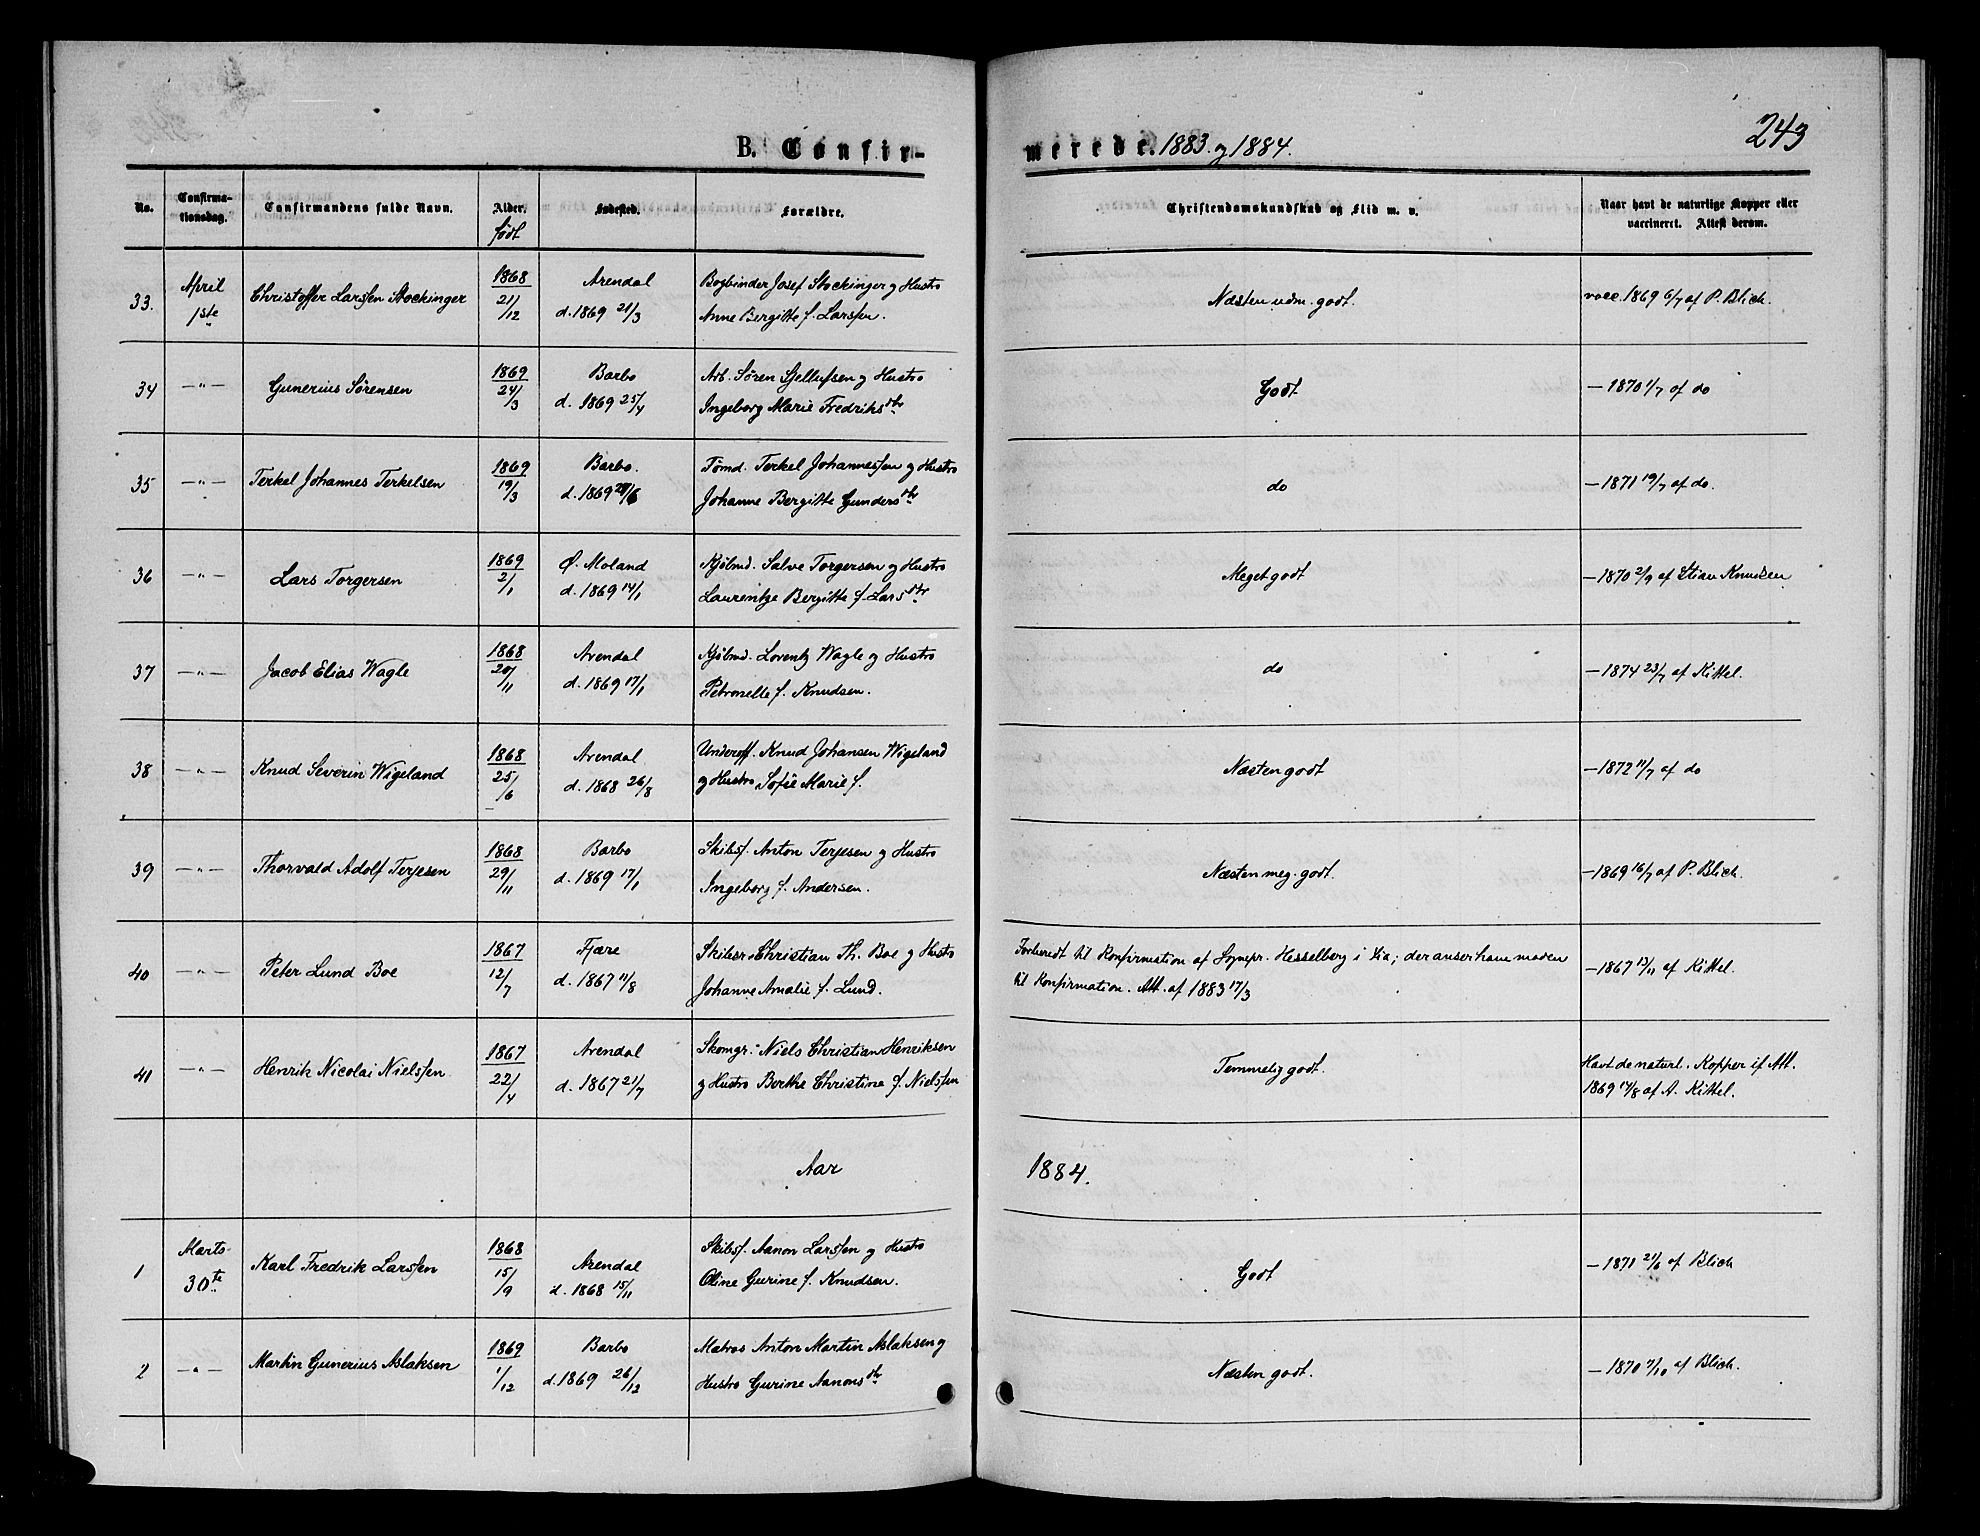 B. Confir-
merede. 1883. og 1884.
243
No.
Confirma-
tionsdag.
Confirmandens fulde Navn.
Alder.
født
Fødested.
Forældre.
Christendomskundskab og Flid m. v.
Naar havt de naturlige Kopper eller
vaccineret. Attest derom.
33.
April
1ste
Christoffer Larssen Stockinger
1868
21/12
Arendal
d. 1869 21/3
Bogbinder Josef Stockinger og Hustro
Anne Bergitte f. Larssen.
Næsten udm. godt.
vacc. 1869 6/7 af P. Blich.
34
—"—
Gunerius Sørensen
1869
24/3
Barbo
d. 1869 25/4
Arb. Sören Gjellufsen og Hustro
Ingeborg Marie Fredriksdtr
Godt
— 1870 1/7 af do
35
—"—
Terkel Johannes Terkelsen
1869
19/3
Barbo.
d. 1869
Tømd. Terkel Johannessen og Hustro
Johanne Bergitte Gundersdtr
do
— 1871 19/7 af do.
36
—"—
Lars Torgersen
1869
2/1
Ø. Moland
d. 1869 14/1
Kjölmd. Salve Torgersen og Hustro
Laurentze Bergitte f. Larsdtr
Meget godt
— 1870 2/9 af Stian Knudsen
37
—"—
Jacob Elias Wagle
1868
20/11
Arendal
d. 1869 17/1
Kjölmd. Lorentz Wagle og Hustro
Petronelle f. Knudsen.
do
— 1874 23/7 af Kittel.
38
—"—
Knud Severin Wigeland
1868
25/6
Arendal
d. 1868 26/8
Underoff. Knud Johansen Wigeland
og Hustro Sofie Marie f.
Næsten godt
— 1872 11/7 af do
39
—"—
Thorvald Adolf Terjesen
1868
29/11
Barbo
d. 1869 17/1
Skibsf. Anton Terjesen og Hustro
Ingeborg f. Andersen.
Næsten meg. godt.
— 1869 16/7 af P. Blich.
40
—"—
Peter Lund Boe
1867
12/7
Fjære
d. 1867 11/8
Skibsr. Christian Th. Boe og Hustro
Johanne Amalie f. Lund.
Forberedt til Konfirmation af Sognepr. Hesselberg i Lia; der anser ham moden
til Konfirmation. Att. af 1883 17/3
— 1867 13/11 af Kittel.
41
—"—
Henrik Nicolai Nielssen
1867
22/4
Arendal
d. 1867 21/7
Skomgr. Niels Christian Henriksen
og Hustro Berthe Christine f. Nielssen
Temmelig godt.
Havt de naturl. Kopper if. Att.
1869 14/8 af A. Kittel.
Aar
1884.
1
Marts
30te
Karl Fredrik Larssen
1868
15/9
Arendal
d. 1868 15/11
Skibsf. Aanon Larssen og Hustro
Oline Gurine f. Knudsen.
Godt
— 1871 21/6 af Blich
2
—"—
Martin Gunerius Aslaksen
1869
1/12
Barbo
d. 1869 26/12
Matros Anton Martin Aslaksen og
Hustro Gurine Aanonsdtr
Næsten godt.
— 1870 7/10 af Blich.